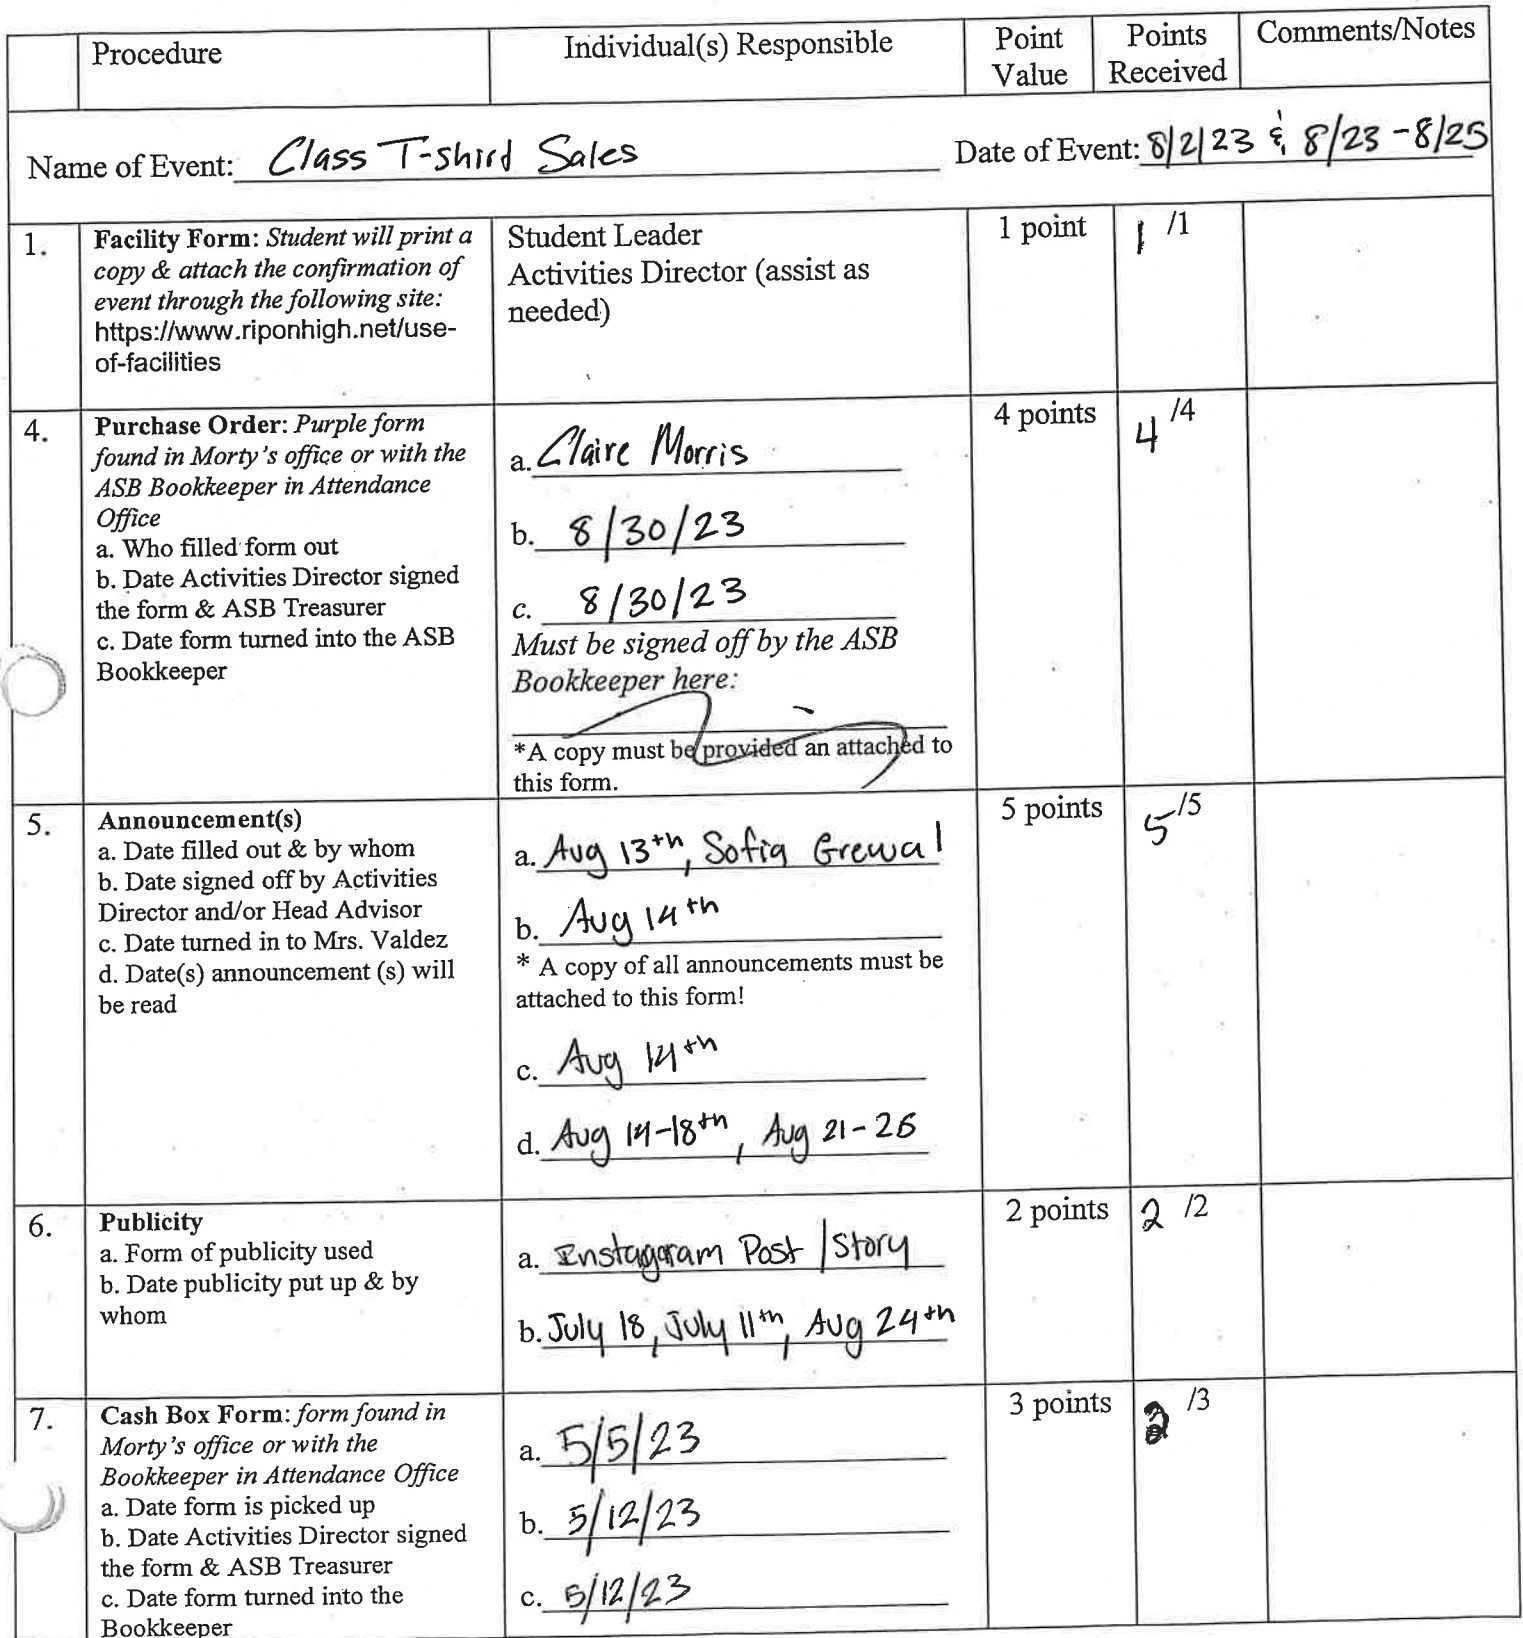 Procedure
Individual(s) Responsible
Point Value
Points Received
Comments/Notes
Name of Event: Class T-shird Sales Date of Event: 8/2/23 & 8/23 - 8/25
1.
Facility Form: Student will print a
copy & attach the confirmation of
event through the following site:
https://www.riponhigh.net/use-
of-facilities
Student Leader
Activities Director (assist as
needed)
1 point
1 /1
4.
Purchase Order: Purple form
found in Morty's office or with the
ASB Bookkeeper in Attendance
Office
a. Who filled form out
b. Date Activities Director signed
the form & ASB Treasurer
c. Date form turned into the ASB
Bookkeeper
a. Claire Morris
b. 8/30/23
c. 8/30/23
Must be signed off by the ASB
Bookkeeper here:
*A copy must be provided an attached to
this form.
4 points
4 /4
5.
Announcement(s)
a. Date filled out & by whom
b. Date signed off by Activities
Director and/or Head Advisor
c. Date turned in to Mrs. Valdez
d. Date(s) announcement (s) will
be read
a. Aug 13th, Sofia Grewal
b. Aug 14th
* A copy of all announcements must be
attached to this form!
c. Aug 14th
d. Aug 14-18th, Aug 21-
5 points
5 /5
6.
Publicity
a. Form of publicity used
b. Date publicity put up & by
whom
a. Instagaram Post / Story
b. July 18, July 11th, Aug 24th
2 points
2 /2
7.
Cash Box Form: form found in
Morty's office or with the
Bookkeeper in Attendance Office
a. Date form is picked up
b. Date Activities Director signed
the form & ASB Treasurer
c. Date form turned into the
Bookkeeper
a. 5/5/23
b. 5/12/23
c. 5/12/23
3 points
/3